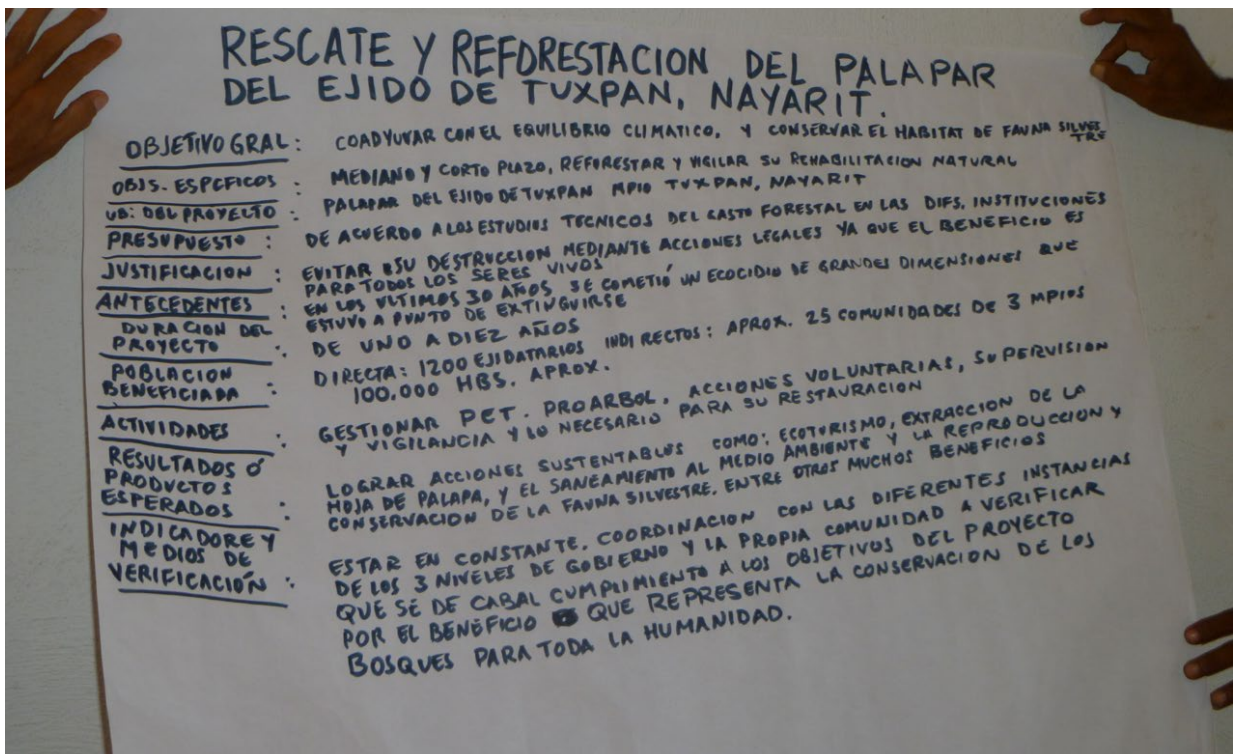 RESCATE Y REFORESTACION DEL PALAPAR
DEL EJIDO DE TUXPAN, NAYARIT.
OBJETIVO GRAL: COADYUVAR CON EL EQUILIBRIO CLIMATICO, Y CONSERVAR EL HABITAT DE FAUNA SILVES
TRE
OBJS. ESPCFICOS : MEDIANO Y CORTO PLAZO, REFORESTAR Y VIGILAR SU REHABILITACION NATURAL
UB: DEL PROYECTO : PALAPAR DEL EJIDO DE TUXPAN MPIO TUXPAN, NAYARIT
PRESUPUESTO : DE ACUERDO A LOS ESTUDIOS TECNICOS DEL GASTO FORESTAL EN LAS DIFS. INSTITUCIONES
JUSTIFICACION : EVITAR SU DESTRUCCION MEDIANTE ACCIONES LEGALES YA QUE EL BENEFICIO ES
PARA TODOS LOS SERES VIVOS
ANTECEDENTES : EN LOS ULTIMOS 30 AÑOS SE COMETIÓ UN ECOCIDIO DE GRANDES DIMENSIONES QUE
ESTUVO A PUNTO DE EXTINGUIRSE
DURACION DEL
PROYECTO : DE UNO A DIEZ AÑOS
POBLACION
BENEFICIADA : DIRECTA: 1200 EJIDATARIOS INDIRECTOS: APROX. 25 COMUNIDADES DE 3 MPIOS
100.000 HBS. APROX.
ACTIVIDADES : GESTIONAR PET. PROARBOL. ACCIONES VOLUNTARIAS, SUPERVISION
Y VIGILANCIA Y LO NECESARIO PARA SU RESTAURACION
RESULTADOS Ó
PRODUCTOS
ESPERADOS : LOGRAR ACCIONES SUSTENTABLES COMO: ECOTURISMO, EXTRACCION DE LA
HOJA DE PALAPA, Y EL SANEAMIENTO AL MEDIO AMBIENTE Y LA REPRODUCCION Y
CONSERVACION DE LA FAUNA SILVESTRE. ENTRE OTROS MUCHOS BENEFICIOS
INDICADORE Y
MEDIOS DE
VERIFICACIÓN : ESTAR EN CONSTANTE. COORDINACION CON LAS DIFERENTES INSTANCIAS
DE LOS 3 NIVELES DE GOBIERNO Y LA PROPIA COMUNIDAD A VERIFICAR
QUE SE DE CABAL CUMPLIMIENTO A LOS OBJETIVOS DEL PROYECTO
POR EL BENEFICIO QUE REPRESENTA LA CONSERVACION DE LOS
BOSQUES PARA TODA LA HUMANIDAD.